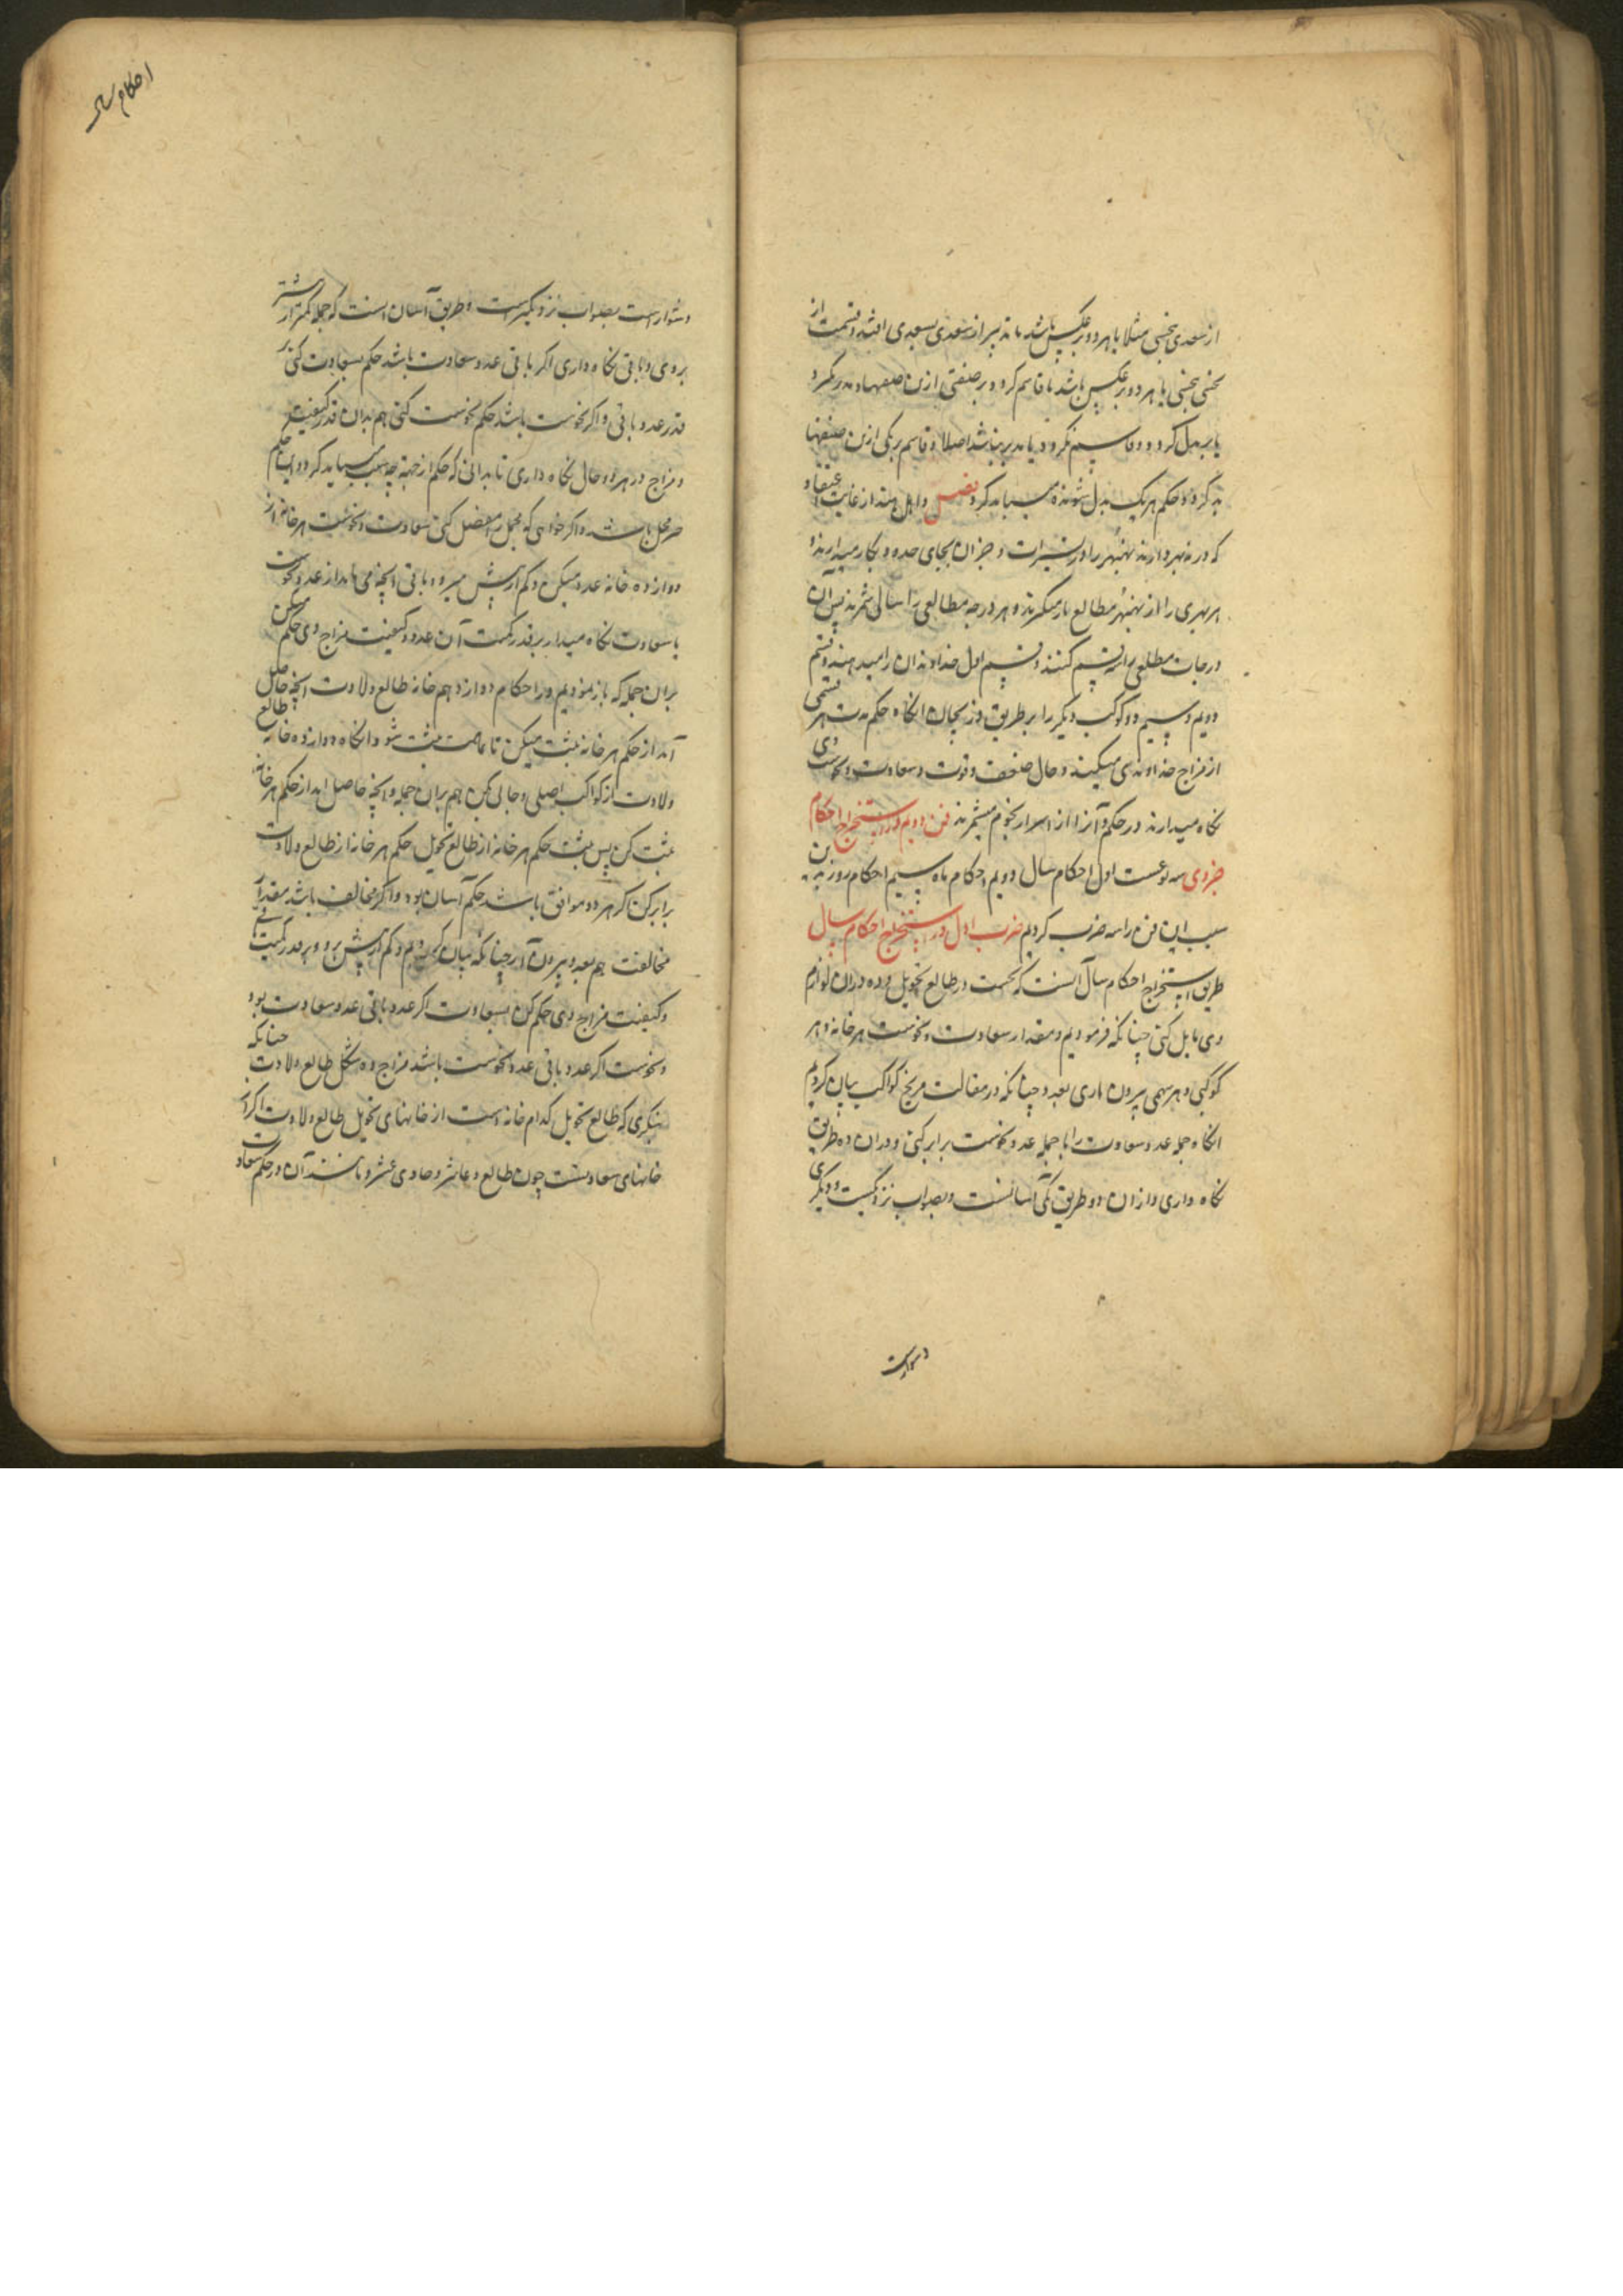 از سعدی بنحسی مثلا یا هر دو بر عکس باشد یا تدبیر از سعدی بسعدی افتد و قسمت از
نحسی بنحسی یا هر دو بر عکس باشد یا قاسم کردد بر صنفی ازین صنفها و مدبر نکردد
یا بر بدل کردد و قاسم نکردد یا مدبر نباشد اصلا و قاسم بر یکی ازین صنفها
بدکردد و حکم هر یک بدل شونده میباید کرد فصل و اهل هند از غایت اعتقاد
که در نهبهر دارند نهبهر را در تسییرات و جز ان بجای حده و بکار میدارند و
هر بهری را از نهبهر مطالع باز میکیرند و هر درجه مطالعی را سال شمرند پس آن
درجات مطلعی را سه قسم کنند و قسم اول خداوند ان را میدهند و قسم
دویم و سیم دو کوکب دیکر را بر طریق دریجان انکاه حکم مدت هر قسمی
از مزاج خداوند وی میکنند و حال ضعف و قوت و سعادت و نحوست وی
نکاه میدارند در حکم و آنرا از اسرار نجوم میشمرند فن دویم در استخراج احکام
جزوی سه نوعست اول احکام سال دویم احکام ماه سیم احکام روز بدین
سبب این فن را سه ضرب کردیم ضرب اول در استخراج احکام سال
طریق استخراج احکام سال آنست که نخست در طالع تحویل و ده دران لوازم
وی تامل کنی چنانکه فرمودیم و مقدار سعادت و نحوست هر خانه و هر
کوکبی و هر سهمی بیرون اری بعدد چنانکه در مقالت مزیج کواکب بیان کردیم
انکاه جمله عدد سعادت را با جمله عدد نحوست برابر کنی و دران ده طریق
نکاه داری و ازان دو طریق یکی آسانست و بصواب نزدیکست و دیکری
دشوارست
احکام سال
دشوار است بصواب نزدیکترست و طریق آسان است که جمله کمتر از بیشتر
بروی و باقی نکاه داری اکر باقی عدد سعادت باشد حکم بسعادت کنی بر
قدر عدد باقی و اکر نحوست باشد حکم نحوست کنی هم بدان قدر کیفیت
و مزاج در هر دو حال نکاه داری تا بدانی که حکم از جهة چه سبب میباید کرد و این حکم
مجمل باشد و اکر خواهی که مجمل را مفصل کنی سعادت و نحوست هر خانه از
دوازده خانه عدد میکن و کم از بیش میرو و باقی انچه می ماند از عدد نحوست
یا سعادت نکاه میدار بر قدر کمیت آن عدد و کیفیت مزاج وی حکم میکن
بران جمله که باز نمودیم در احکام دوازدهم خانه طالع ولادت انچه حاصل
آید از حکم هر خانه مثبت میکن تا تمامت مثبت شود و انکاه دوازده خانه طالع
ولادت از کواکب اصلی و حالی کن هم بران جمله و انچه حاصل اید از حکم هر خانه
مثبت کن پس مثبت حکم هر خانه از طالع تحویل حکم هر خانه از طالع ولادت
برابر کن اکر هر دو موافق باشد حکم آسان بود و اکر مخالف باشد مقدار
مخالفت هم بعدد بیرون آر چنانکه بیان کردیم و کم از بیش برو و بر قدر کمیت باقی
و کیفیت مزاج وی حکم کن بسعادت اکر عدد باقی عدد سعادت بود
و نحوست اکر عدد باقی عدد نحوست باشد مزاج ده شکل طالع ولادت چنانکه
بنکری که طالع تحویل کدام خانه است از خانهای تحویل طالع ولادت اکر از
خانهای سعادتست چون طالع و عاشر و حادی عشر و مانند آن در حکم سعادت